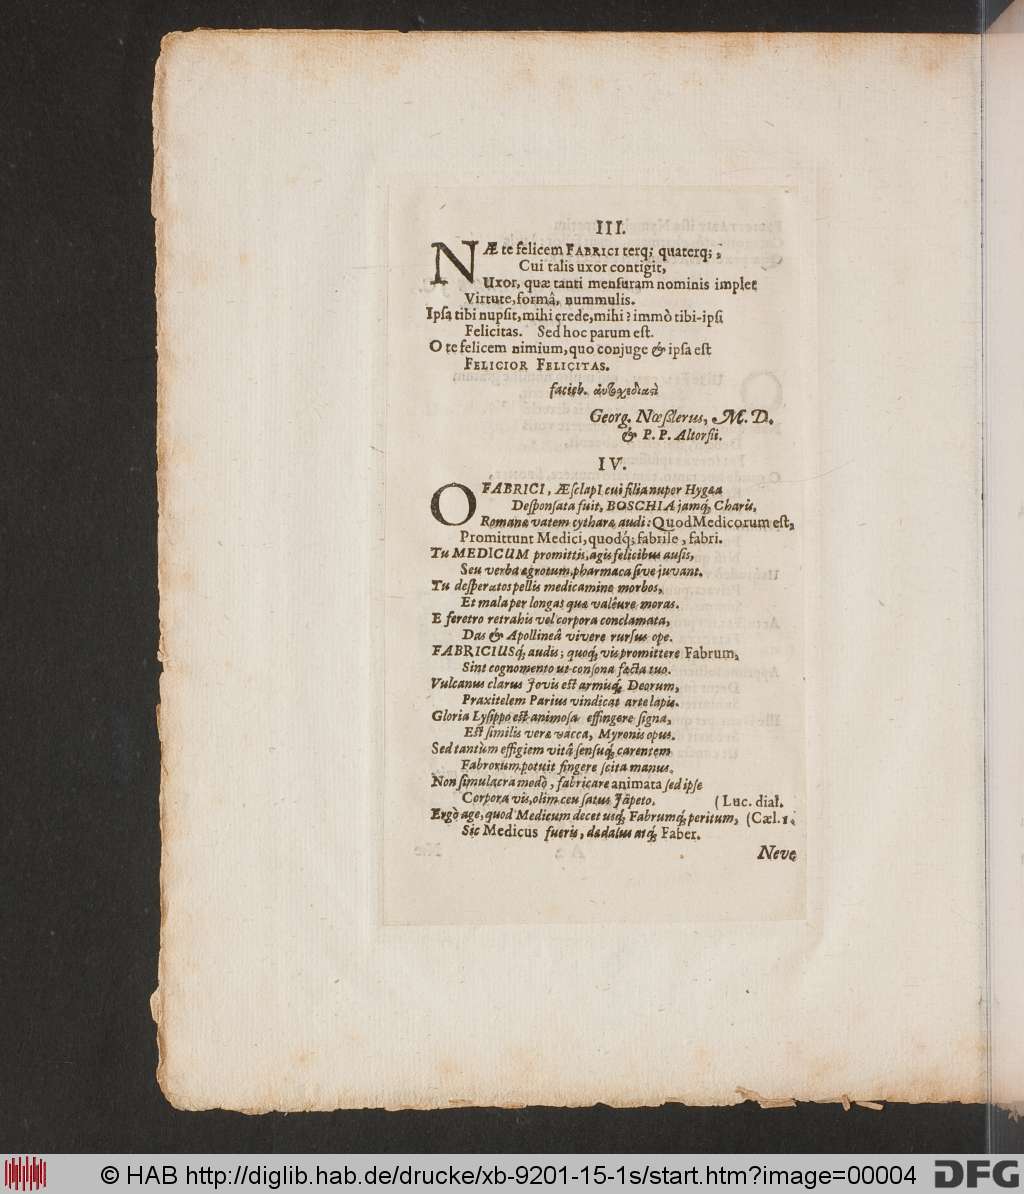 III.
NÆ te felicem FABRICI terq; quaterq;,
Cui talis uxor contigit,
Uxor, quæ tanti mensuram nominis implet
Virtute, formâ, nummulis.
Ipsa tibi nupsit, mihi crede, mihi? immò tibi-ipsi
Felicitas. Sed hoc parum est.
O te felicem nimium, quo conjuge & ipsa est
FELICIOR FELICITAS.
facieb. αὐτοχεδιαςὶ
Georg. Nœßlerus, M. D.
& P. P. Altorfii.
IV.
O FABRICI, Æsclapi cui filia nuper Hygæa
Desponsata fuit, BOSCHIA jamq; Charis,
Romanæ vatem cytharæ audi: Quod Medicorum est,
Promittunt Medici, quodq; fabrile, fabri.
Tu MEDICUM promittis, agis felicibus ausis,
Seu verba ægrotum, pharmaca sive juvant.
Tu desperatos pellis medicamine morbos,
Et mala per longas quæ valûere moras.
E feretro retrahis vel corpora conclamata,
Das & Apollineâ vivere rursus ope.
FABRICIUSq; audis; quoq; vis promittere Fabrum,
Sint cognomento ut consona facta tuo.
Vulcanus clarus Jovis est armisq; Deorum,
Praxitelem Parius vindicat arte lapis.
Gloria Lysippo est animosa effingere signa,
Est similis veræ vacca, Myronis opus.
Sed tantùm effigiem vitâ sensuq; carentem
Fabrorum potuit fingere scita manus.
Non simulacra modò, fabricare animata sed ipse
Corpora vis, olim ceu satus Jâpeto. (Luc. dial.
Ergò age, quod Medicum decet usq; Fabrumq; peritum, (Cæl. 1.
Sic Medicus fueris, dædalus atq; Faber.
Neve
© HAB http://diglib.hab.de/drucke/xb-9201-15-1s/start.htm?image=00004
DFG